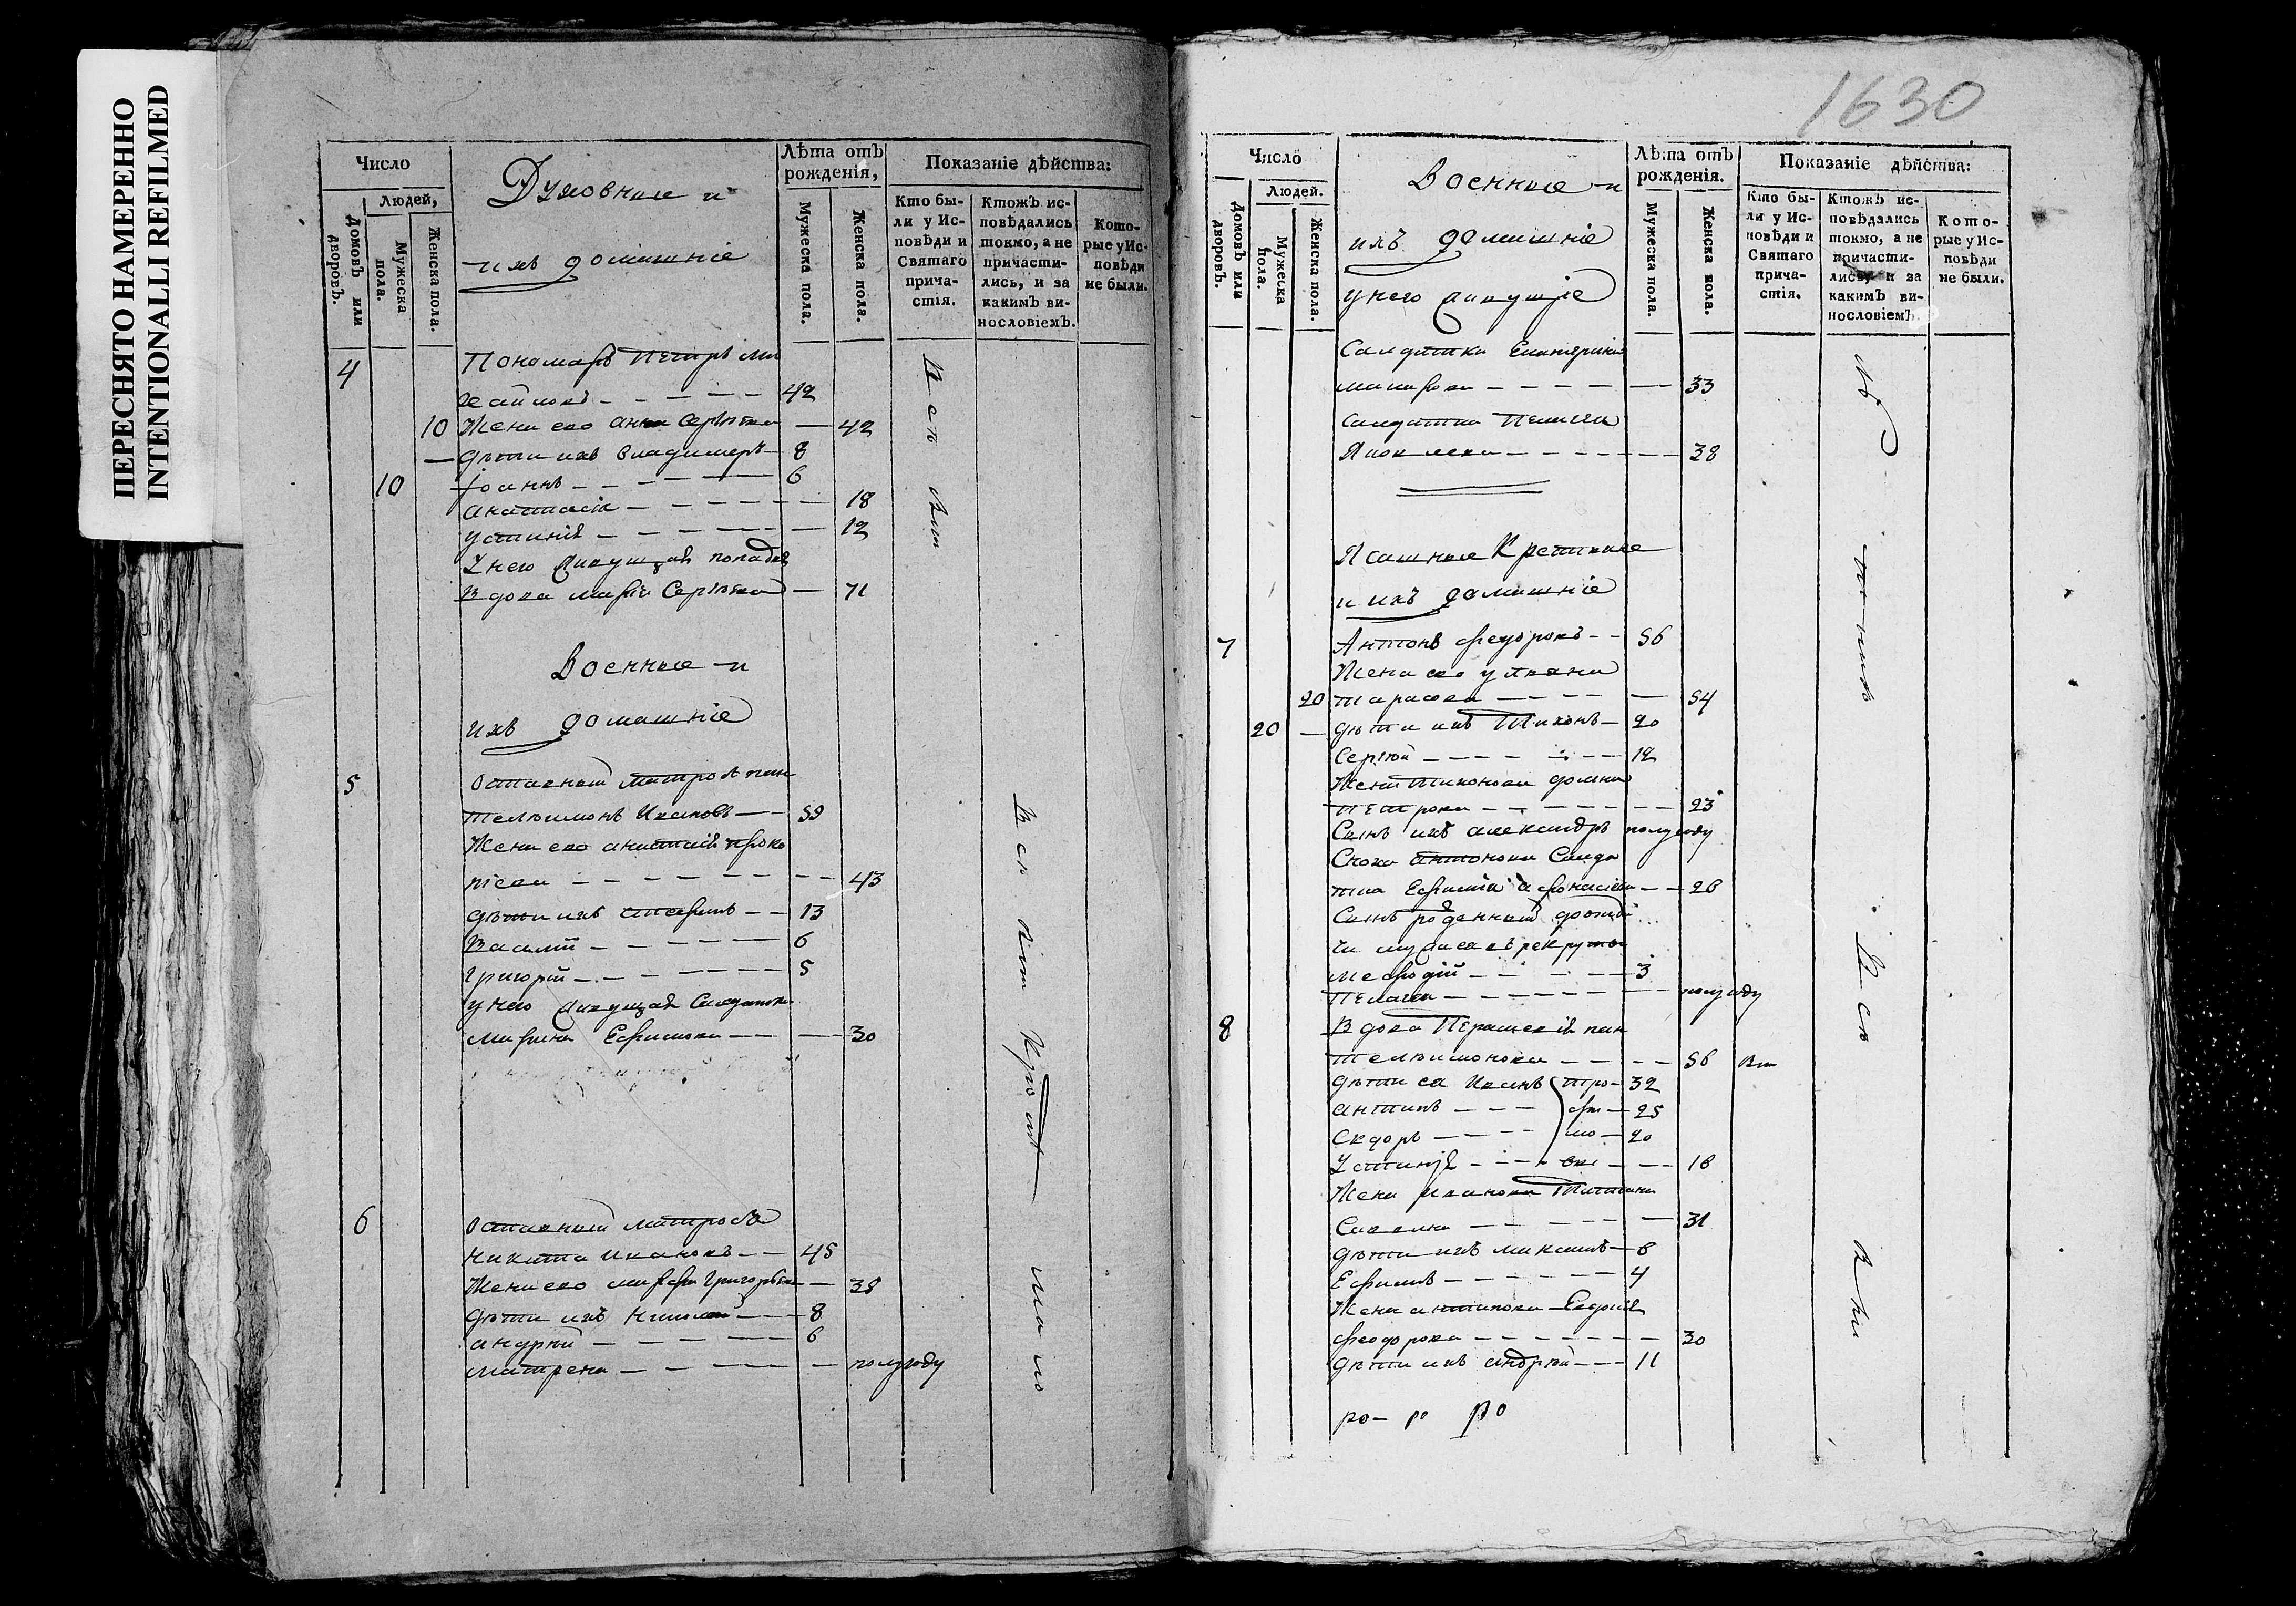 ПЕРЕСНЯТО НАМЕРЕННО
INTENTIONALLI REFILMED
Число
Людей,
Домовъ или дворовъ.
Мужеска пола.
Женска пола.
Духовные и
ихъ домашніе
Лѣта отъ рожденія,
Мужеска пола.
Женска пола.
Показаніе дѣйства:
Кто были у Исповѣди и Святаго причастія.
Ктожъ исповѣдались токмо, а не причастились, и за какимъ винословіемъ.
Которые у Исповѣди не были.
4 Пономарь Петръ Ми
хайловъ - - - - 42
10 Жена его Анна Сергѣева — 42
дѣти ихъ Владимеръ — 8
10 Іоаннъ - - - - 6
Анастасія - - - - 18
Устинія - - - - 12
У него живущая попадья
Вдова Марія Сергѣева — 71
Военные и
ихъ домашніе
5 Отставный матрозъ Пан
телеимонъ Ивановъ — 59
Жена его Анастасія Проко
піева - - - - 43
дѣти ихъ Стефанъ — 13
Василій - - - - 6
Григорій - - - - 5
у него живущая Салдатка
Марина Ефимова — 30
6 Отставный матрозъ
Никита Ивановъ — 45
Жена его Марфа Григорьева — 38
дѣти ихъ Николай — 8
Андрей - - - - 6
Матрена - - - - полугоду
1630
Число
Людей.
Домовъ или дворовъ.
Мужеска пола.
Женска пола.
Военные и
ихъ домашніе
у него живущіе
Лѣта отъ рожденія.
Мужеска пола.
Женска пола.
Показаніе дѣйства:
Кто были у Исповѣди и Святаго причастія.
Ктожъ исповѣдались токмо, а не причастились, и за какимъ винословіемъ.
Которые у Исповѣди не были.
Салдатка Екатерина
Макарова - - - - 33
Салдатка Пелагея
Яковлева - - - - 38
Ясашные Крестьяне
и ихъ домашніе
7 Антонъ Феодоровъ - - 56
Жена его Ульяна
20 Тарасова - - - - 54
20 дѣти ихъ Тихонъ — 20
Сергей - - - - 12
Жена Тихонова Домна
Петрова - - - - 23
Сынъ ихъ Александръ полугоду
Сноха Антонова Салда
тка Ефимія Афонасіева — 26
Сынъ
Мефодій - - - - 3
Пелагея - - - - полугоду
8 Вдова Парасковія Пан
телеимонова - - - - 56
дѣти ея Иванъ тро- 32
Антипъ - - - фи — 25
Сидоръ - - - мо — 20
Устинія - - - вы — 16
Жена Иванова Татіана
Савелова - - - - 31
дѣти ихъ Максимъ — 6
Ефимъ - - - - 4
Жена Антипова Евдокія
Феодорова - - - - 30
дѣти ихъ Андрей — 11
ро- ро ро